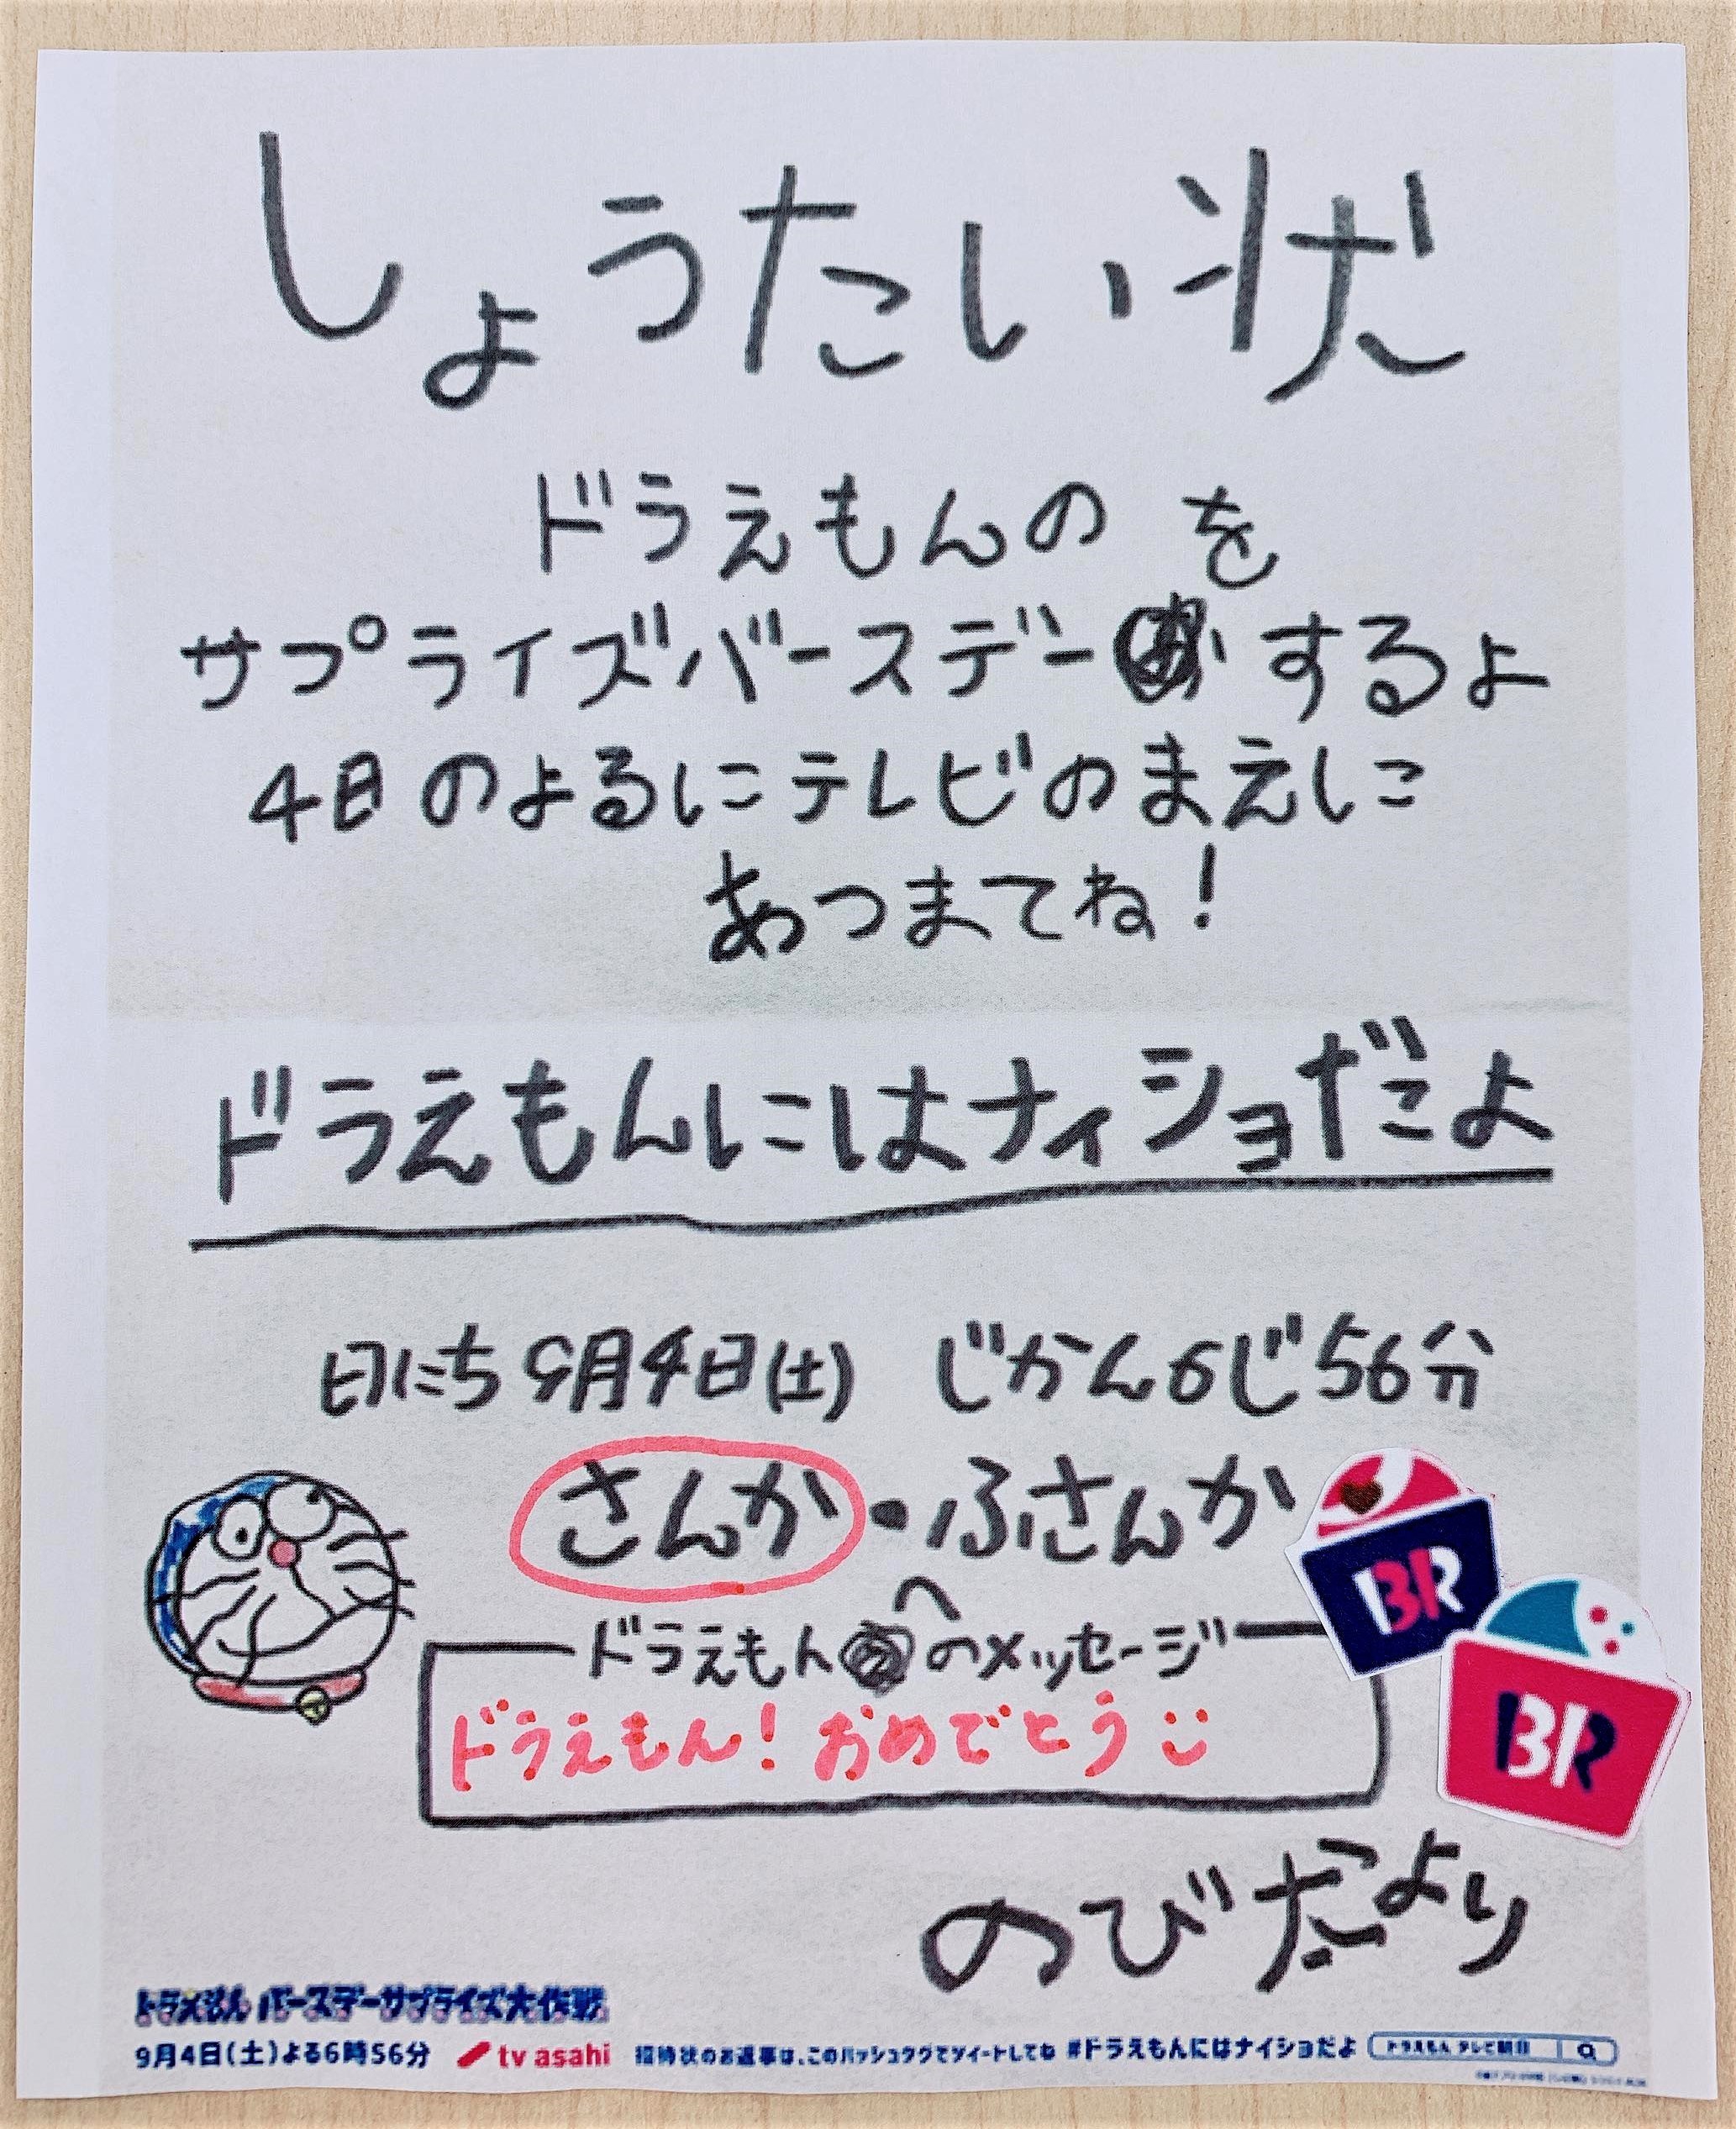 しょうたい状
ドラえもんの を
サプライズバースデーするよ
4日のよるにテレビのまえに
あつまてね!
ドラえもんにはナイショだよ
日にち9月4日(土) じかん6じ56分
さんか・ふさんか
ドラえもんへのメッセージ
ドラえもん!おめでとう
BR
BR
のびだより
ドラえもん バースデーサプライズ大作戦
9月4日(土)よる6時56分 tv asahi 招待状のお返事は、このハッシュタグでツイートしてね #ドラえもんにはナイショだよ ドラえもん テレビ朝日